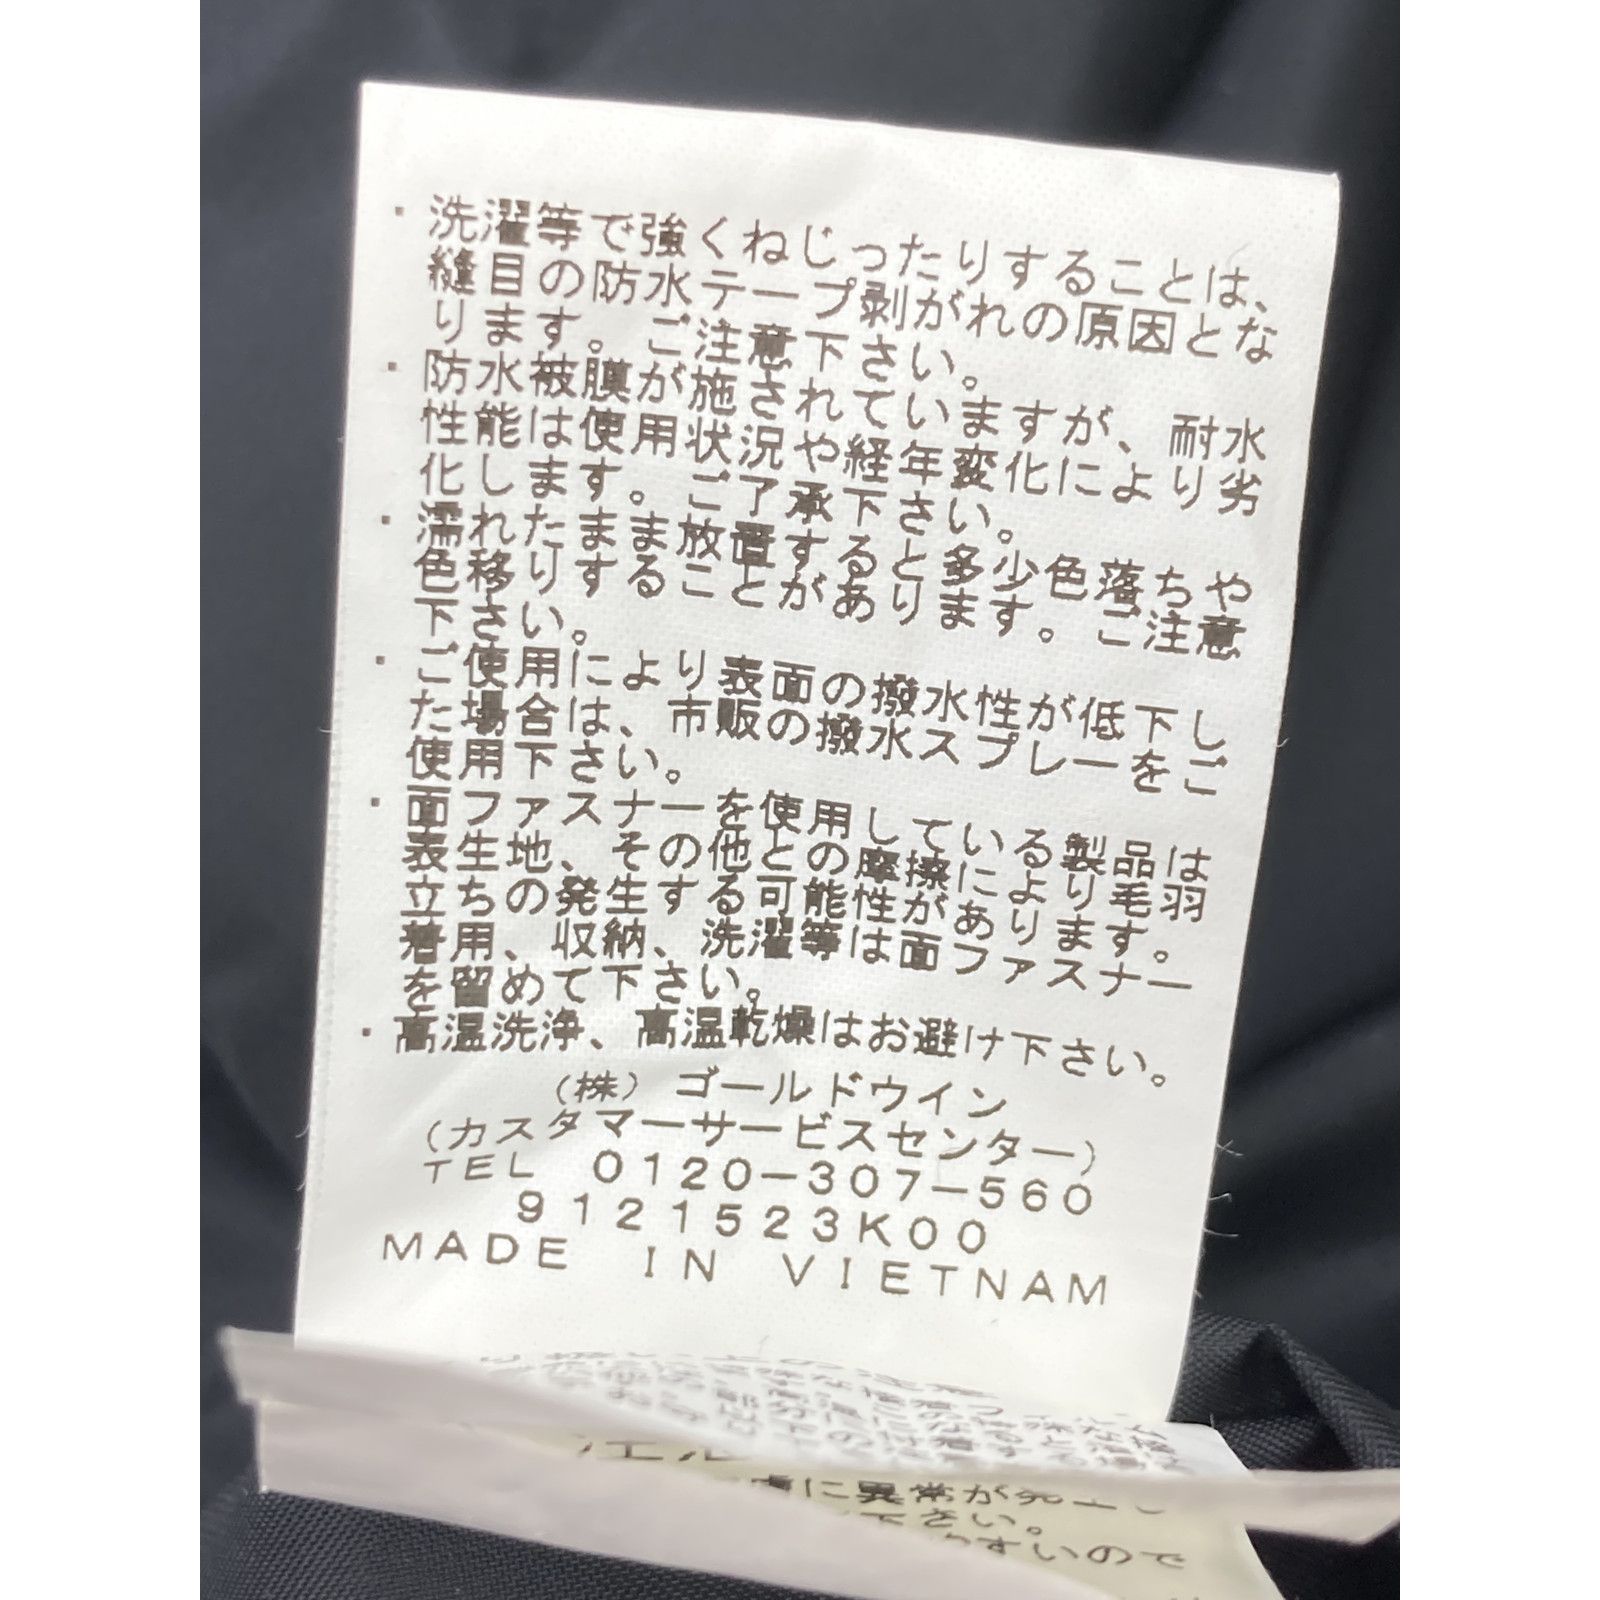 ・洗濯等で強くねじったりすることは、
縫目の防水テープ剥がれの原因とな
ります。ご注意下さい。
・防水被膜が施されていますが、耐水
性能は使用状況や経年変化により劣
化します。ご了承下さい。
・濡れたまま放置すると多少色落ちや
色移りすることがあります。ご注意
下さい。
・ご使用により表面の撥水性が低下し
た場合は、市販の撥水スプレーをご
使用下さい。
・面ファスナーを使用している製品は
表生地、その他との摩擦により毛羽
立ちの発生する可能性があります。
着用、収納、洗濯等は面ファスナー
を留めて下さい。
・高温洗浄、高温乾燥はお避け下さい。
(株)ゴールドウイン
(カスタマーサービスセンター)
TEL 0120-307-560
9121523K00
MADE IN VIETNAM
に異常が
下さい。
すいので